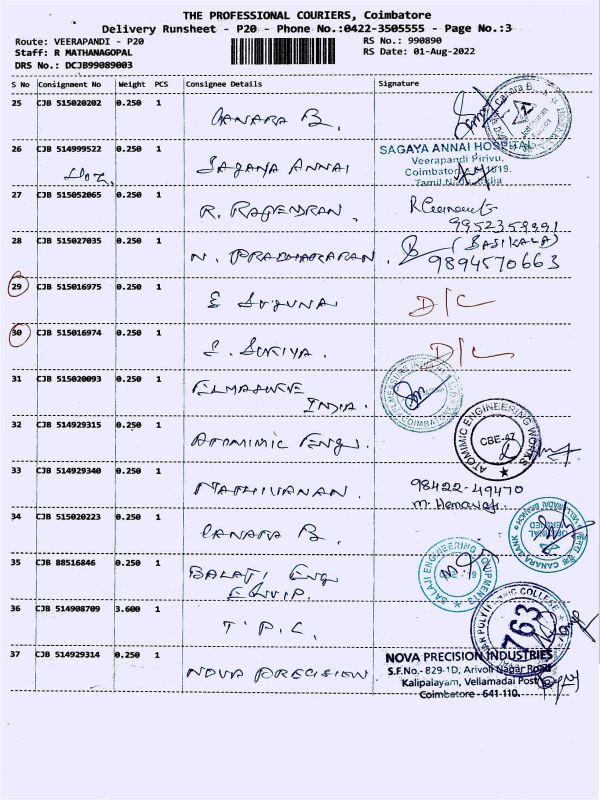 THE PROFESSIONAL COURIERS, Coimbatore
Delivery Runsheet - P20 - Phone No.:0422-3505555 - Page No.:3
Route: VEERAPANDI - P20 RS No.: 990890
Staff: R MATHANAGOPAL RS Date: 01-Aug-2022
DRS No.: DCJB99089003
S No Consignment No Weight PCS Consignee Details Signature
25 CJB 515020202 0.250 1 CANARA B.
26 CJB 514999522 0.250 1 SAGAYA ANNAI
SAGAYA ANNAI HOSPITAL
Veerapandi Pirivu,
Coimbatore
Tamil Nadu, India
27 CJB 515052065 0.250 1 R. RAGENDRAN.
28 CJB 515027035 0.250 1 N. PRABHAKARAN. (SASIKALA)
9894570663
29 CJB 515016975 0.250 1 E SUGUNA D/C
30 CJB 515016974 0.250 1 S. SURIYA. D/C
31 CJB 515020093 0.250 1
INDIA.
COIMBATORE
32 CJB 514929315 0.250 1 ATOMIMIC ENG.
ATOMIMIC ENGINEERING WORKS
CBE-47
33 CJB 514929340 0.250 1 MATHIVANAN. 98422-49470
34 CJB 515020223 0.250 1 CANARA B.
CANARA BANK
35 CJB 88516846 0.250 1 BALAJI ENG
EQUIP.
BALAJI ENGINEERING EQUIPMENTS
36 CJB 514908709 3.600 1 T.P.C.
POLYTECHNIC COLLEGE
763
37 CJB 514929314 0.250 1 NOVA PRECISION
NOVA PRECISION INDUSTRIES
S.F.No.- 829-1D, Arivoli Nagar Road
Kalipalayam, Vellamadai Post
Coimbatore - 641-110.